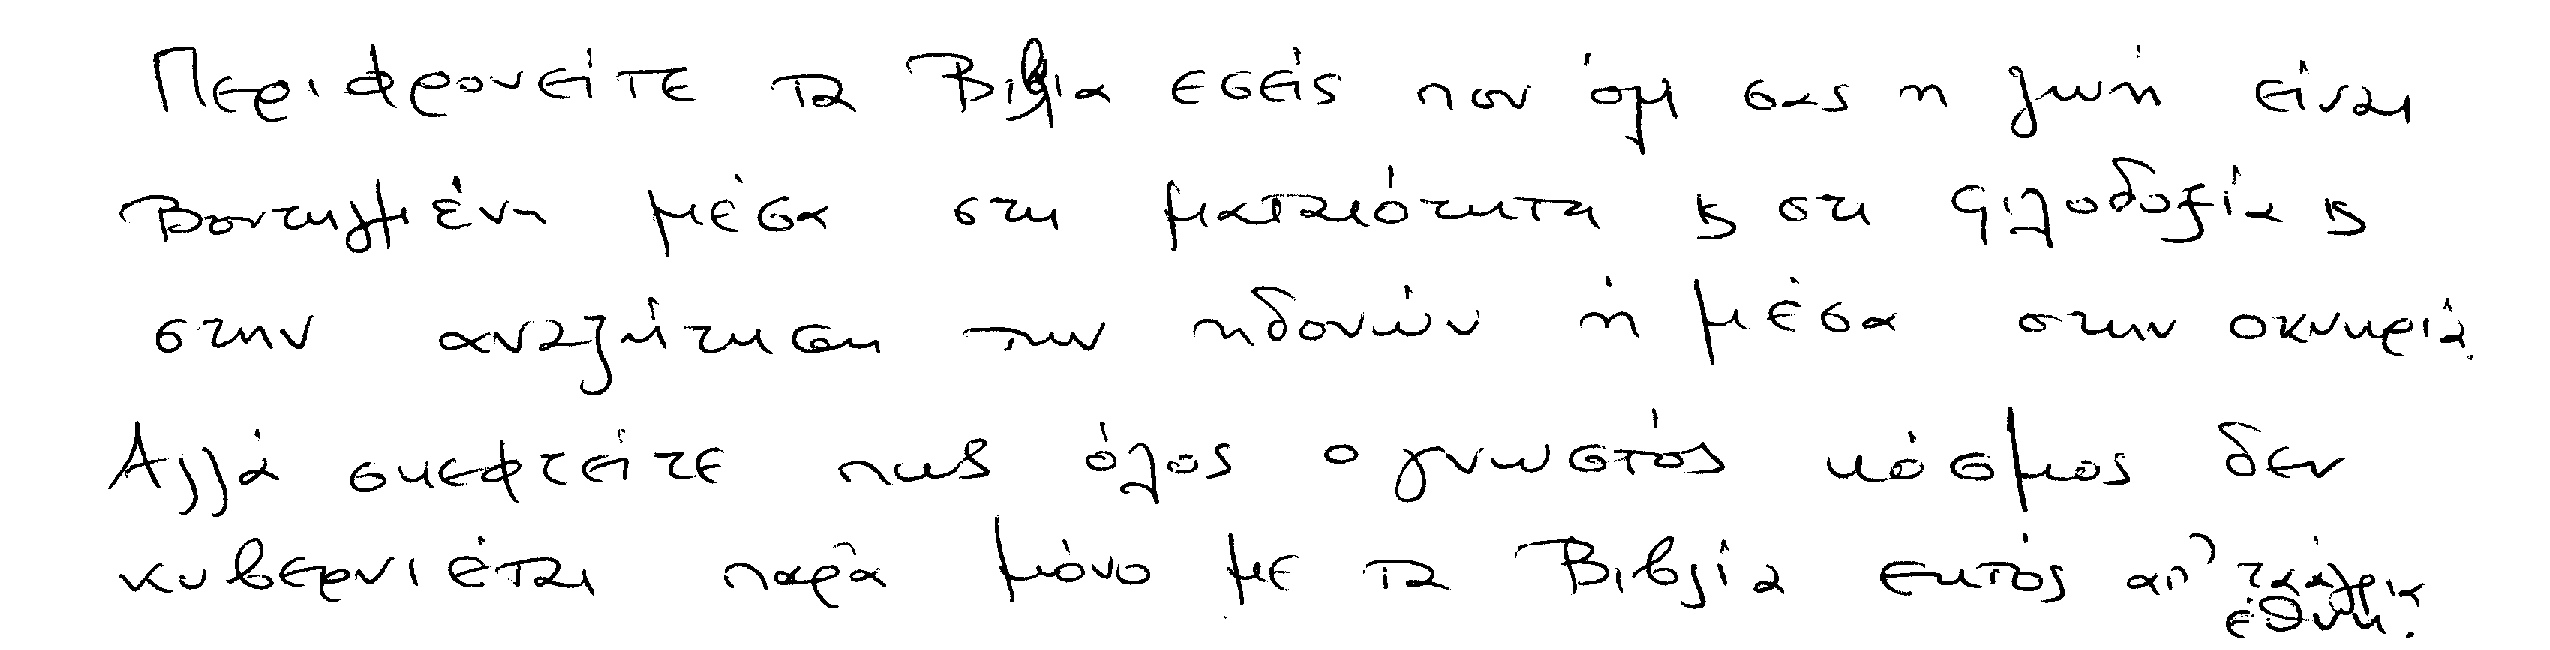 Περιφρονείτε τα Βιβλια εσείς που όλη σας η ζωή είναι
Βουτηγμένη μέσα στη ματαιότητα κ στη φιλοδοξία κ
στην αναζήτηση των ηδονών ή μέσα στην οκνηριά.
Αλλά σκεφτείτε πως όλος ο γνωστός κόσμος δεν
κυβερνιέται παρά μόνο με τα Βιβλία εκτός απ' τα άγρια
έθνη.